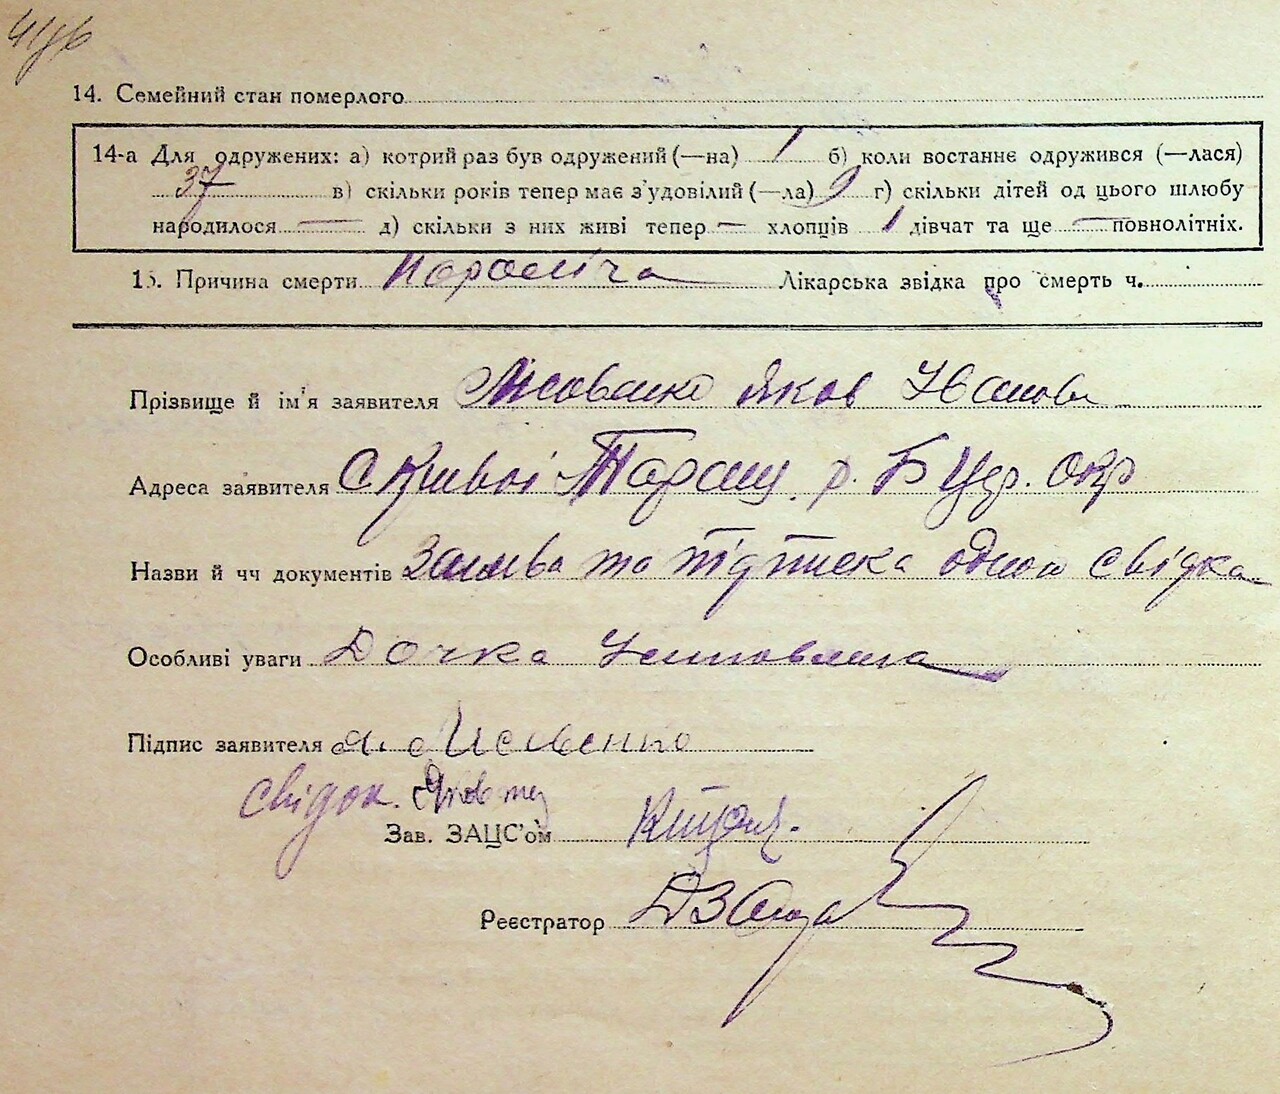 14. Семейний стан померлого
14-а Для одружених: а) котрий раз був одружений (—на) 1 б) коли востаннє одружився (—лася)
37 в) скільки років тепер має з'удовілий (—ла) г) скільки дітей од цього шлюбу
народилося — д) скільки з них живі тепер — хлопців 1 дівчат та ще — повнолітніх.
15. Причина смерти Параліча Лікарська звідка про смерть ч.
Прізвище й ім'я заявителя Лисовенко Яков Іванов
Адреса заявителя с Кривої р. Б Цер. Окр
Назви й чч документів Заява та підписка одного свідка
Особливі уваги Дочка
Підпис заявителя Я. Лисовенко
свідок.
Зав. ЗАЦС'ом
Реєстратор